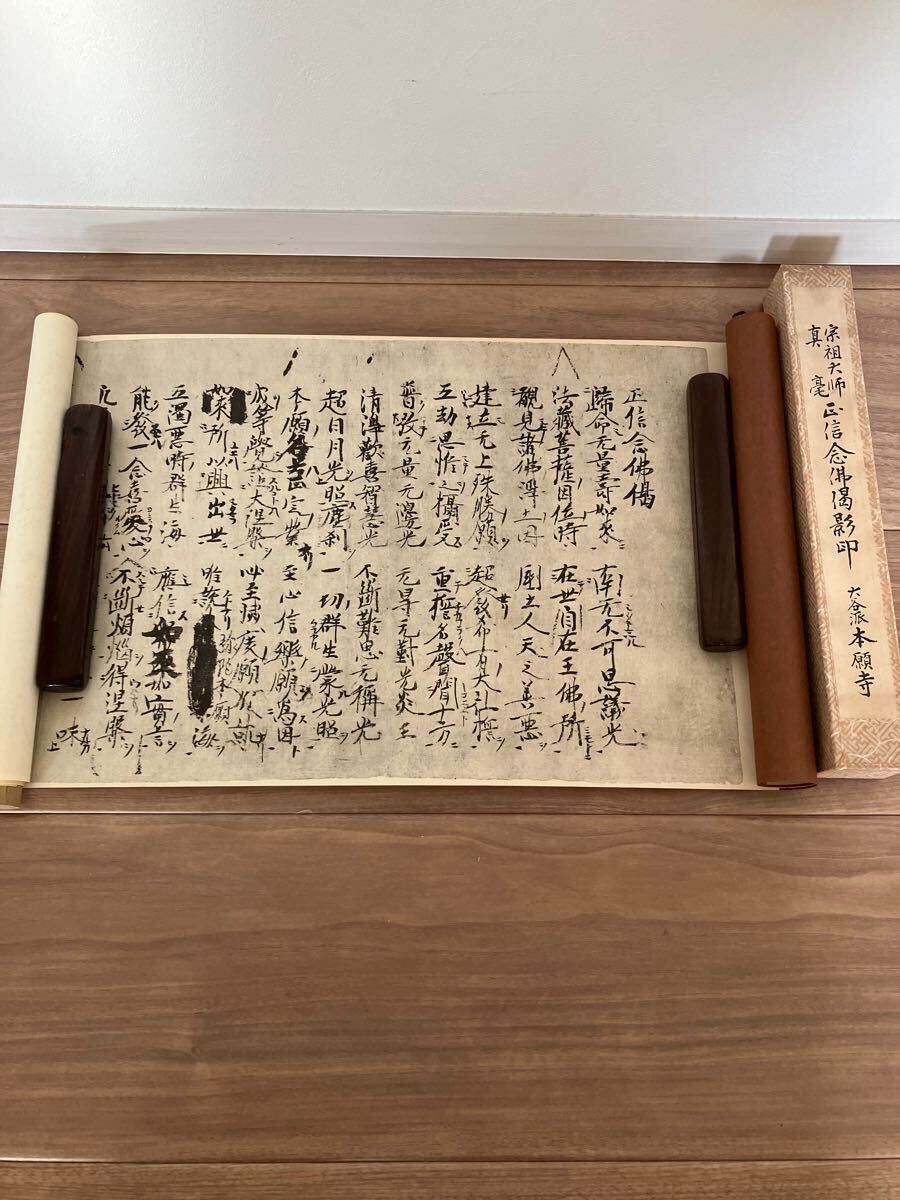 宗祖大師
真毫
正信念佛偈影印
大谷派本願寺
正信念佛偈
歸命无量壽如來 南无不可思議光
法藏菩薩因位時 在世自在王佛所
覩見諸佛淨土因 國土人天之善惡
建立无上殊勝願 超發希有大弘誓
五劫思惟之攝受 重誓名聲聞十方
普放无量无邊光 无㝵无對光炎王
清淨歡喜智慧光 不斷難思无稱光
超日月光照塵刹 一切群生蒙光照
本願名号正定業 至心信樂願爲因
成等覺證大涅槃 必至滅度願成就
如來所以興出世 唯說弥陀本願海
五濁惡時群生海 應信如來如實言
能發一念喜愛心 不斷煩惱得涅槃
凡 一味